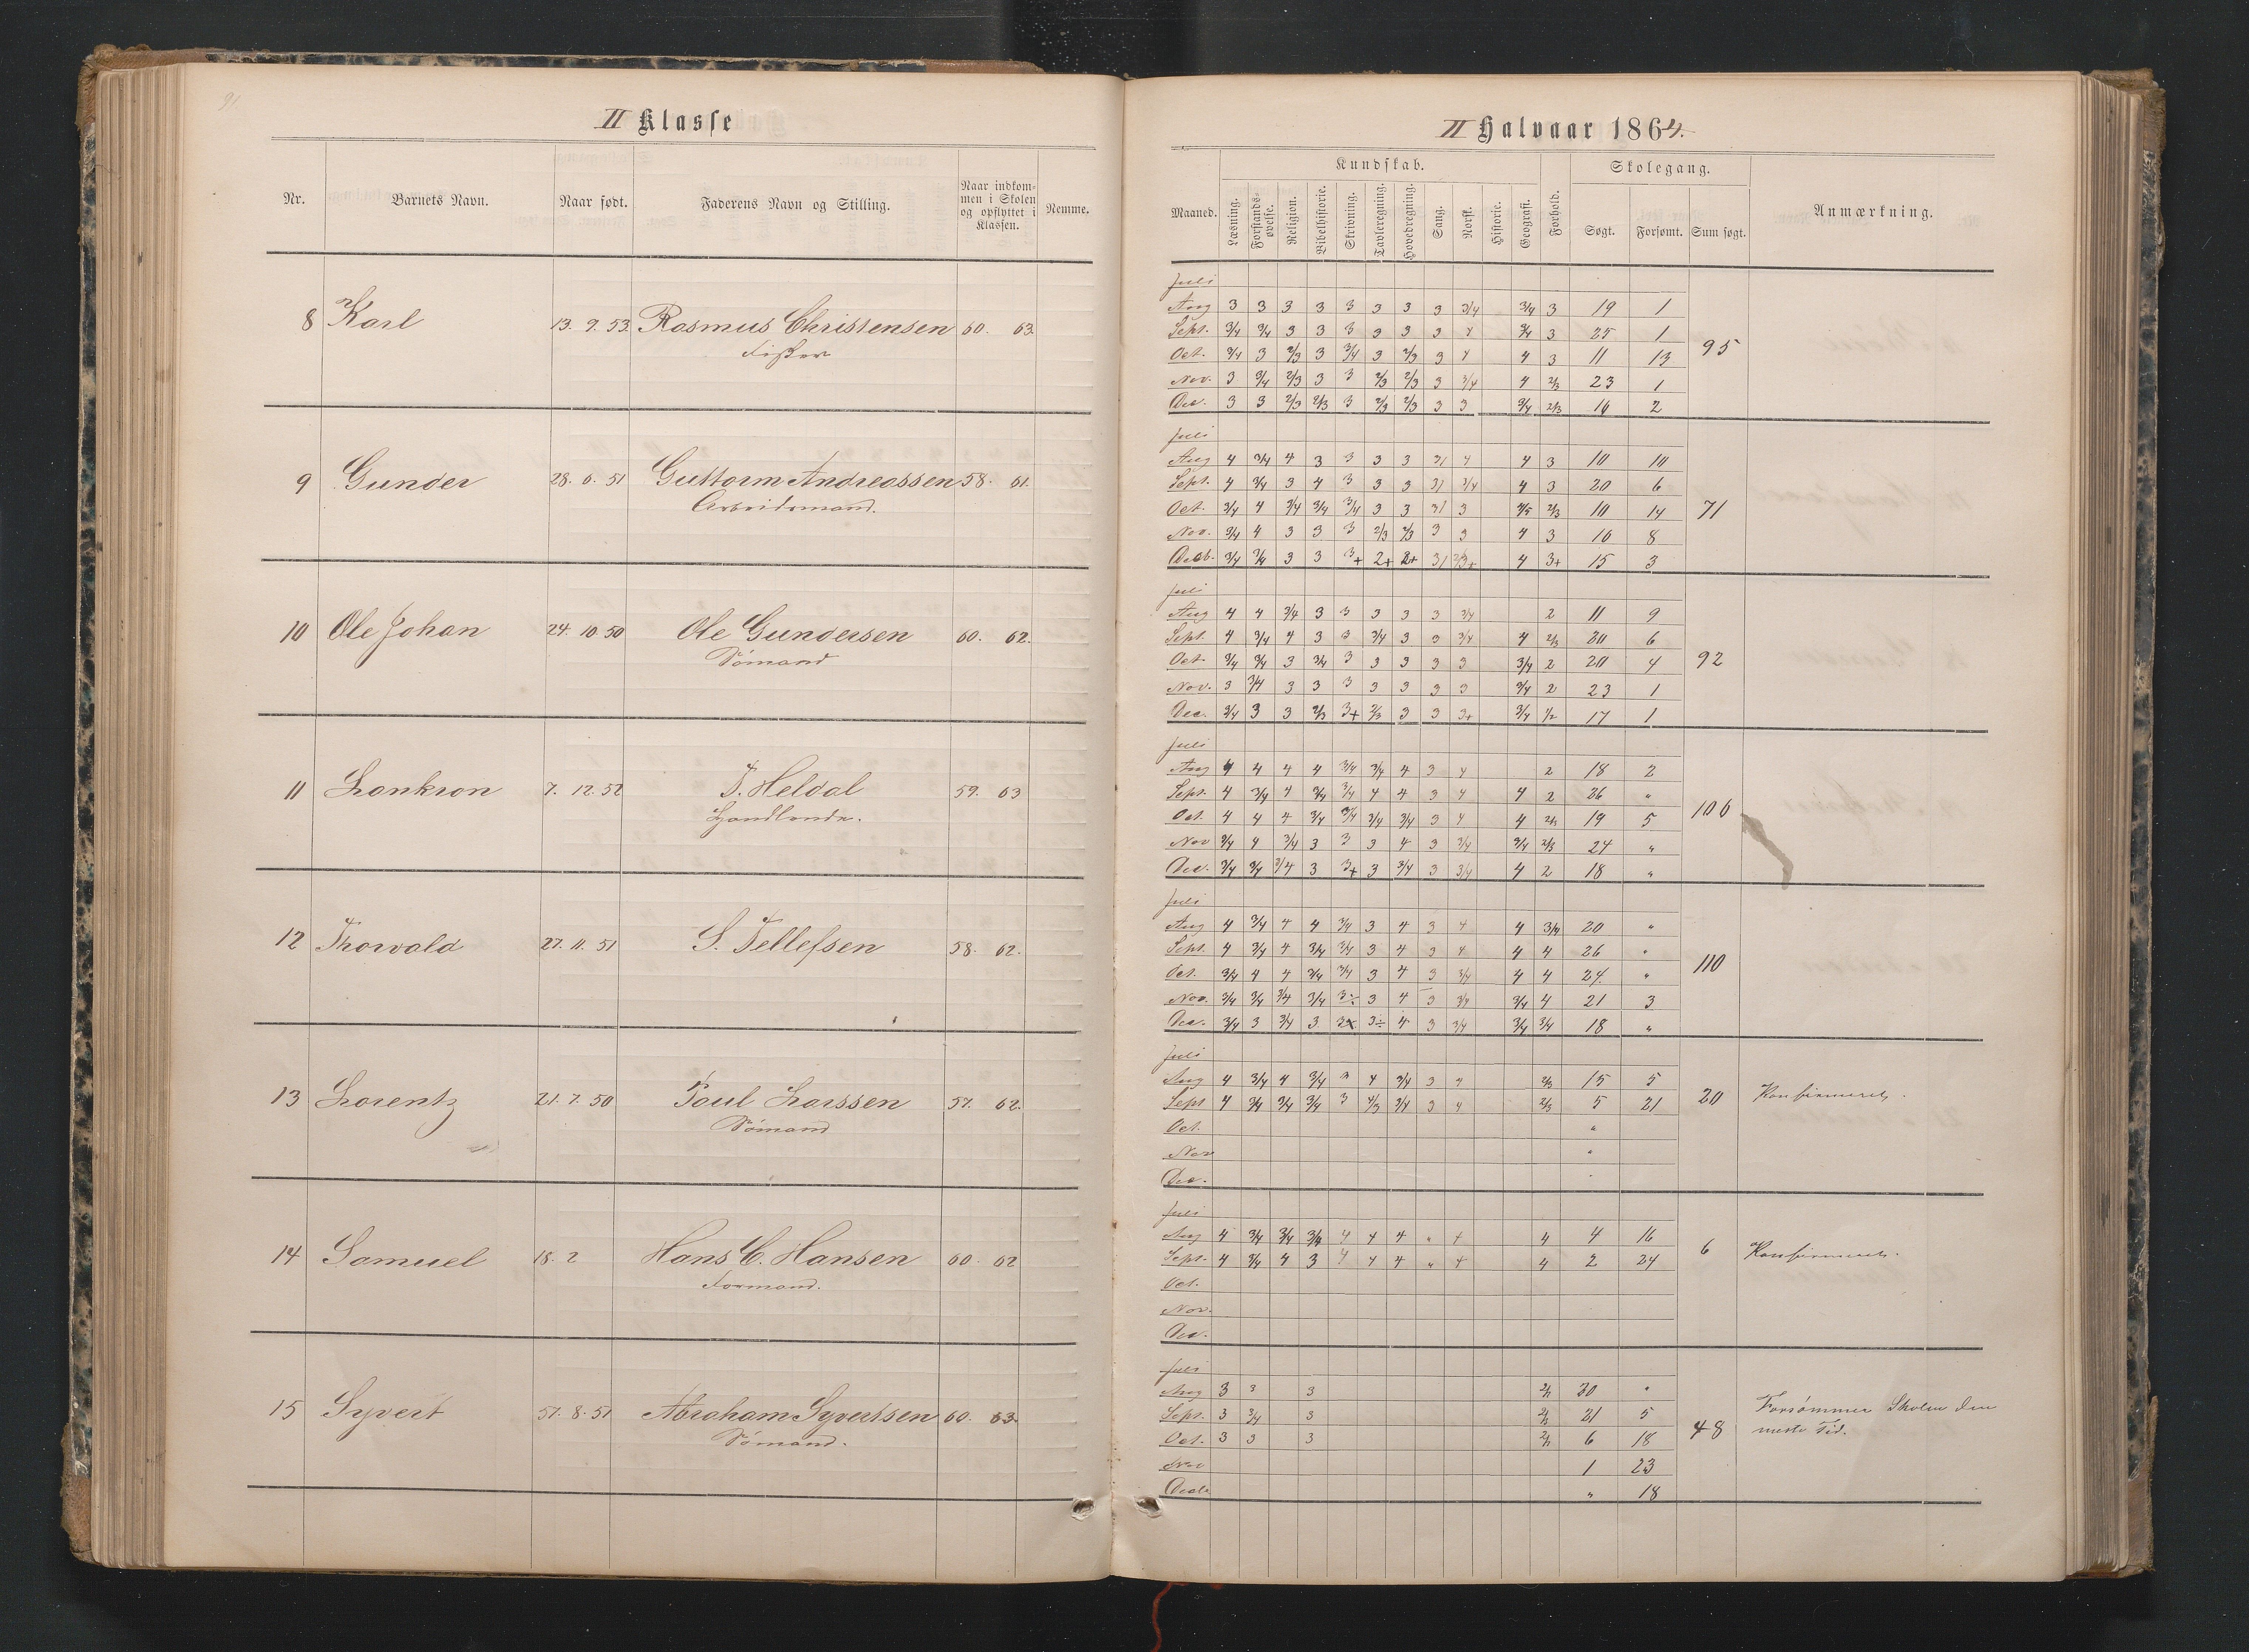 91.
II Klasse
Nr. Barnets Navn. Naar født. Faderens Navn og Stilling. Naar indkommen i Skolen og opflyttet i Klassen. Nemme.
8 Karl 13. 9. 53. Rasmus Christensen 60. 63.
Fisker
9 Gunder 28. 6. 51 Guttorm Andreassen 58. 61.
Arbeidsmand.
10 Ole Johan 24. 10. 50 Ole Gundersen 60. 62.
Sømand
11 7. 12. 52 T. Heldal 59. 63
Handlende.
12 Thorvald 27. 11. 51 S. Tellefsen 58. 62.
13 Lorentz 21. 7. 50 Poul Larssen 57. 62.
Sømand
14 Samuel 18. 2 Hans C. Hansen 60. 62
Formand.
15 Syvert 8. 51 Abraham Syvertsen 60. 63.
Sømand.
II Halvaar 1864.
Kundskab. Skolegang.
Maaned. Læsning. Forstandsøvelse. Religion. Bibelhistorie. Skrivning. Tavleregning. Hovedregning. Sang. Norsk. Historie. Geografi. Forhold. Søgt. Forsømt. Sum søgt. Anmærkning.
Juli
Aug 3 3 3 3 3 3 3 3 3/4 3/4 3 19 1
Sept. 3/4 3/4 3 3 3 3 3 3 4 3/4 3 25 1
Oct. 3/4 3 2/3 3 3/4 3 2/3 3 4 4 3 11 13 95
Nov. 3 3/4 2/3 3 3 2/3 2/3 3 3/4 4 2/3 23 1
Dec. 3 3 2/3 2/3 3 2/3 2/3 3 3 3/4 2/3 16 2
Juli
Aug 4 3/4 4 3 3 3 3 4 4 3 10 10
Sept. 4 3/4 3 4 3 3 3 3/4 4 3 20 6
Oct. 3/4 4 3/4 3/4 3/4 3 3 3 2/3 10 14 71
Nov. 3/4 4 3 3 3 2/3 2/3 3 3 4 3 16 8
Decb. 3/4 3/4 3 3 3+ 2+ 2+ 4 3+ 15 3
Juli
Aug 4 4 3/4 3 3 3 3 3 3/4 2 11 9
Sept. 4 3/4 4 3 3 3/4 3 3 3/4 4 2/3 20 6
Oct. 3/4 3/4 3 3/4 3 3 3 3 3 3/4 2 20 4 92
Nov. 3 3/4 3 3 3 3 3 3 3 3/4 2 23 1
Dec. 3/4 3 3 2/3 3+ 2/3 3 3 3+ 3/4 1/2 17 1
Juli
Aug 4 4 4 4 3/4 3/4 4 3 4 2 18 2
Sept. 4 3/4 4 3/4 3/4 4 4 3 4 4 2 26 "
Oct. 4 4 4 3/4 3/4 3/4 3/4 3 4 4 2/3 19 5 106
Nov 3/4 4 3/4 3 3 3 4 3 3/4 3/4 2/3 24 "
Dec. 3/4 3/4 3/4 3 3+ 3 3/4 3 3/4 4 2 18 "
Juli
Aug 4 3/4 4 4 3/4 3 4 3 4 4 3/4 20 "
Sept. 4 3/4 4 3/4 3/4 3 4 3 4 4 4 26 "
Oct. 3/4 4 4 3/4 3/4 3 4 3 3/4 4 4 24 " 110
Nov. 3/4 3/4 3/4 3/4 3÷ 3 4 3 3/4 3/4 4 21 3
Dec. 3/4 3 3/4 3 3÷ 4 3 3/4 3/4 3/4 18 "
Juli
Aug 4 3/4 4 3/4 3 4 3/4 3 4 2/3 15 5
Sept 4 3/4 3/4 3/4 3 4/3 3/4 3 4 2/3 5 21 20 Konfirmeret.
Oct. "
Nov "
Dec.
Juli
Aug 4 3/4 3/4 3/4 4 4 4 " 4 4 4 16
Sept. 4 3/4 4 3 4 4 4 " 4 4 2 24 6 Konfirmeret.
Oct.
Nov.
Dec.
Juli
Aug 3 3 3 "
Sept. 3 3/4 3 21 5 Forsømmer Skolen den
Oct. 3 3 3 6 18 48 meste Tid.
Nov 1 23
Decb " 18